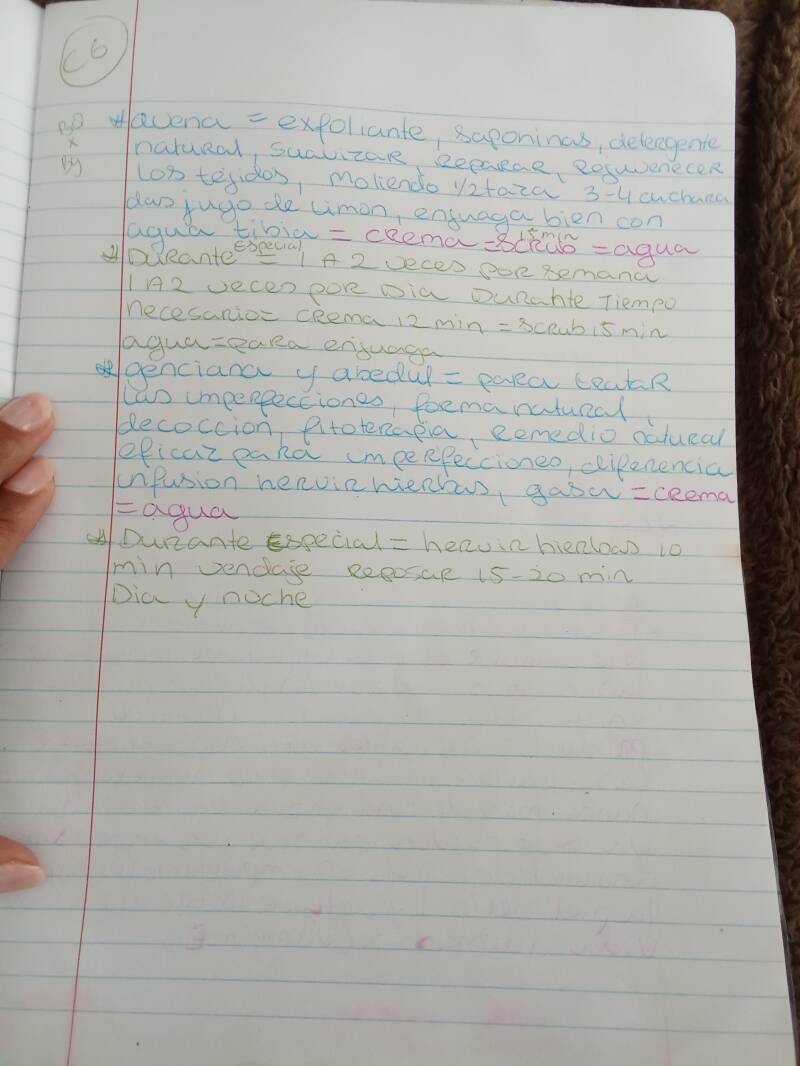 C6
* avena = exfoliante, saponinas, detergente
natural, suavizar, reparar, rejuvenecer
los tejidos, moliendo 1/2 taza 3-4 cuchara
das jugo de limon, enjuaga bien con
agua tibia = crema = scrub = agua
15 min
* Durante Especial = 1 A 2 veces por semana
1 A 2 veces por Dia Durante Tiempo
necesario = crema 12 min = scrub 15 min
agua = para enjuaga
* genciana y abedul = para tratar
las imperfecciones, forma natural,
decoccion, fitoterapia, remedio natural
eficaz para imperfecciones, diferencia
infusion hervir hierbas, gasa = crema
= agua
* Durante Especial = hervir hierbas 10
min vendaje reposar 15-20 min
Dia y noche